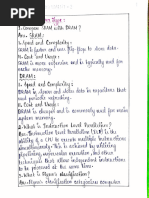 1. Compare SRAM with DRAM?
Ans:- SRAM:
1. Speed and Complexity:
SRAM is faster and uses flip flops to store data.
2. Cost and Usage:
SRAM is more expensive and is typically used for
cache memory.
DRAM:
1. Speed and Complexity:
DRAM is slower and
to store data
2. Cost and Usage:
DRAM is cheaper and is commonly used for main
system memory.
2. What is Instruction Level Parallelism?
Ans:- Instruction Level Parallelism (ILP) is the
ability of a CPU to execute multiple instructions
simultaneously
techniques that allow independent instructions
to be processed
3. What is Flynn's classification?
Ans:- Flynn's classification categorizes computer